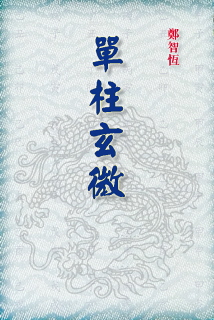 鄭智恆
單柱玄微